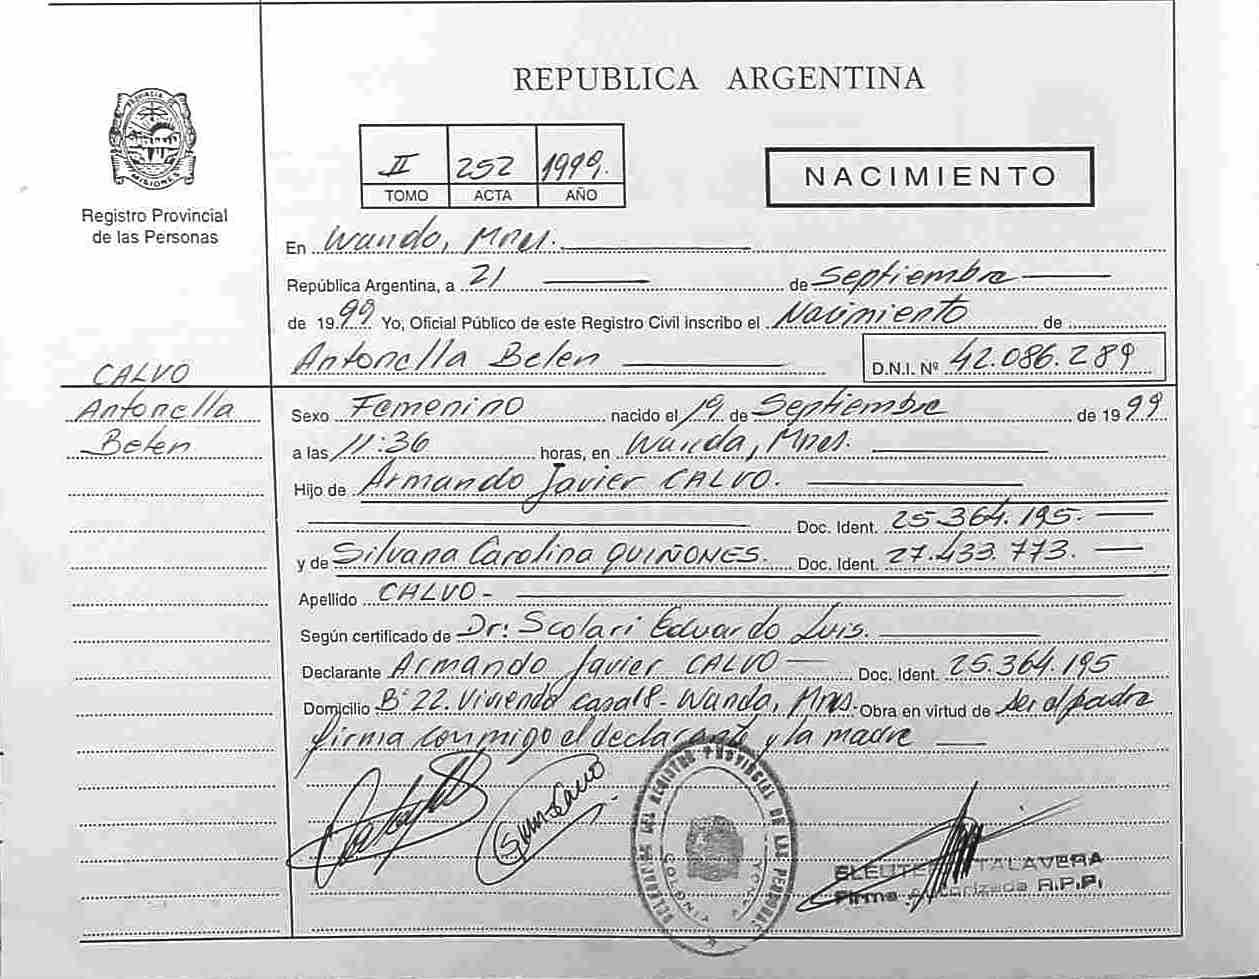 REPUBLICA ARGENTINA
PROVINCIA DE
MISIONES
Registro Provincial
de las Personas
II 252 1999.
TOMO ACTA AÑO
NACIMIENTO
En Wanda, Mnes.
República Argentina, a 21 de Septiembre
de 1999 Yo, Oficial Público de este Registro Civil inscribo el Nacimiento de
Antonella Belen D.N.I. Nº 42.086.289
CALVO
Antonella
Belen
Sexo Femenino nacido el 19 de Septiembre de 1999
a las 11:36 horas, en Wanda, Mnes.
Hijo de Armando Javier CALVO.
Doc. Ident. 25.364.195.
y de Silvana Carolina QUIÑONES. Doc. Ident. 27.433.773.
Apellido CALVO -
Según certificado de Dr: Scolari Eduardo Luis.
Declarante Armando Javier CALVO Doc. Ident. 25.364.195
Domicilio Bº 22. Vivienda casa 18 - Wanda, Mnes. Obra en virtud de ser el padre
firma conmigo el declarante y la madre
DEL REGISTRO PROVINCIAL DE LAS PERSONAS
TALAVERA
Firma Autorizada R.P.P.